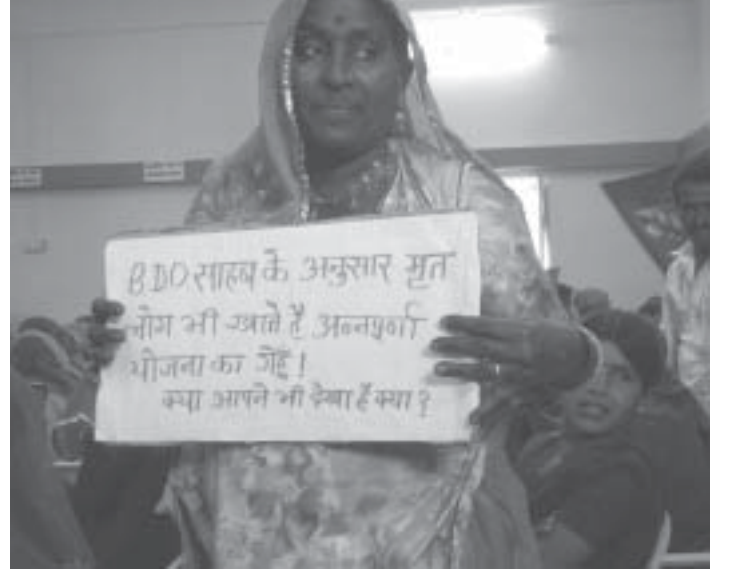 BDO साहब के अनुसार मृत
लोग भी खाते है अन्नपूर्णा
योजना का गेहूँ!
क्या आपने भी देखा है क्या?